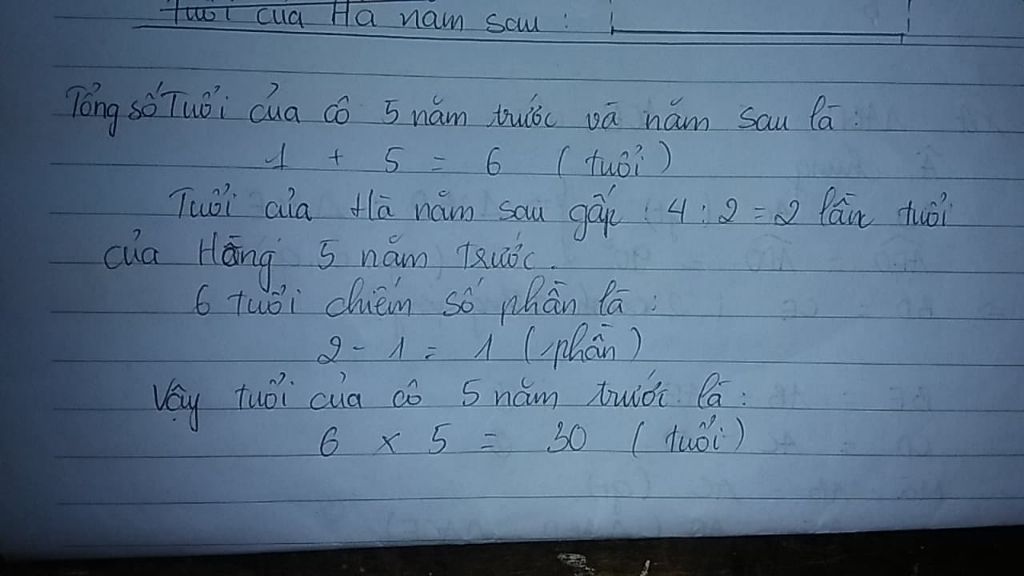 Tuổi của Hà năm sau :
Tổng số Tuổi của cô 5 năm trước và năm sau là :
1 + 5 = 6 ( tuổi )
Tuổi của Hà năm sau gấp : 4 : 2 = 2 lần tuổi
của Hằng 5 năm trước.
6 tuổi chiếm số phần là :
2 - 1 = 1 ( phần )
Vậy tuổi của cô 5 năm trước là :
6 x 5 = 30 ( tuổi )